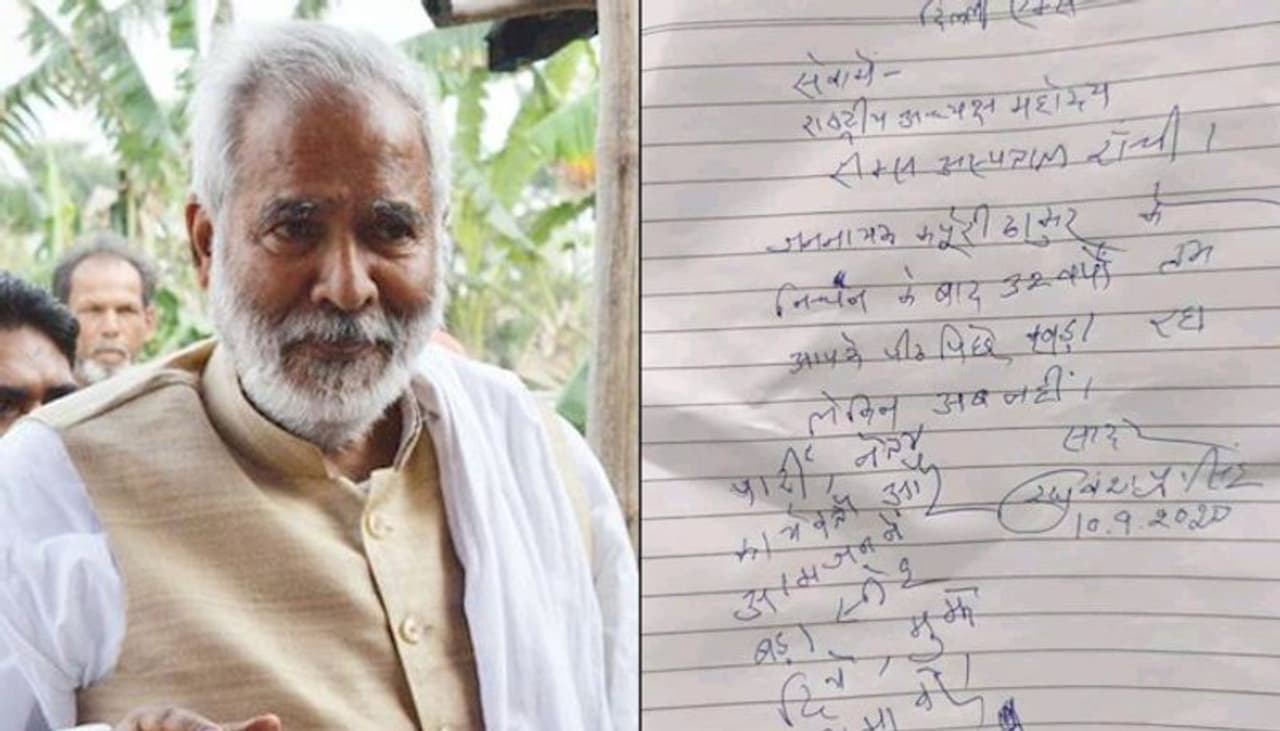 दिल्ली एम्स
सेवामें-
राष्ट्रीय अध्यक्ष महोदय
रिम्स अस्पताल रांची।
जननायक कर्पूरी ठाकुर के
निधन के बाद ३२ वर्षों तक
आपके पीठ पीछे खड़ा रहा
लेकिन अब नहीं।
पार्टी, नेता
कार्यकर्ता और
आमजन ने
बड़ा स्नेह
दिया, मुझे
क्षमा करें।
सादर
रघुवंश प्र. सिंह
10.9.2020